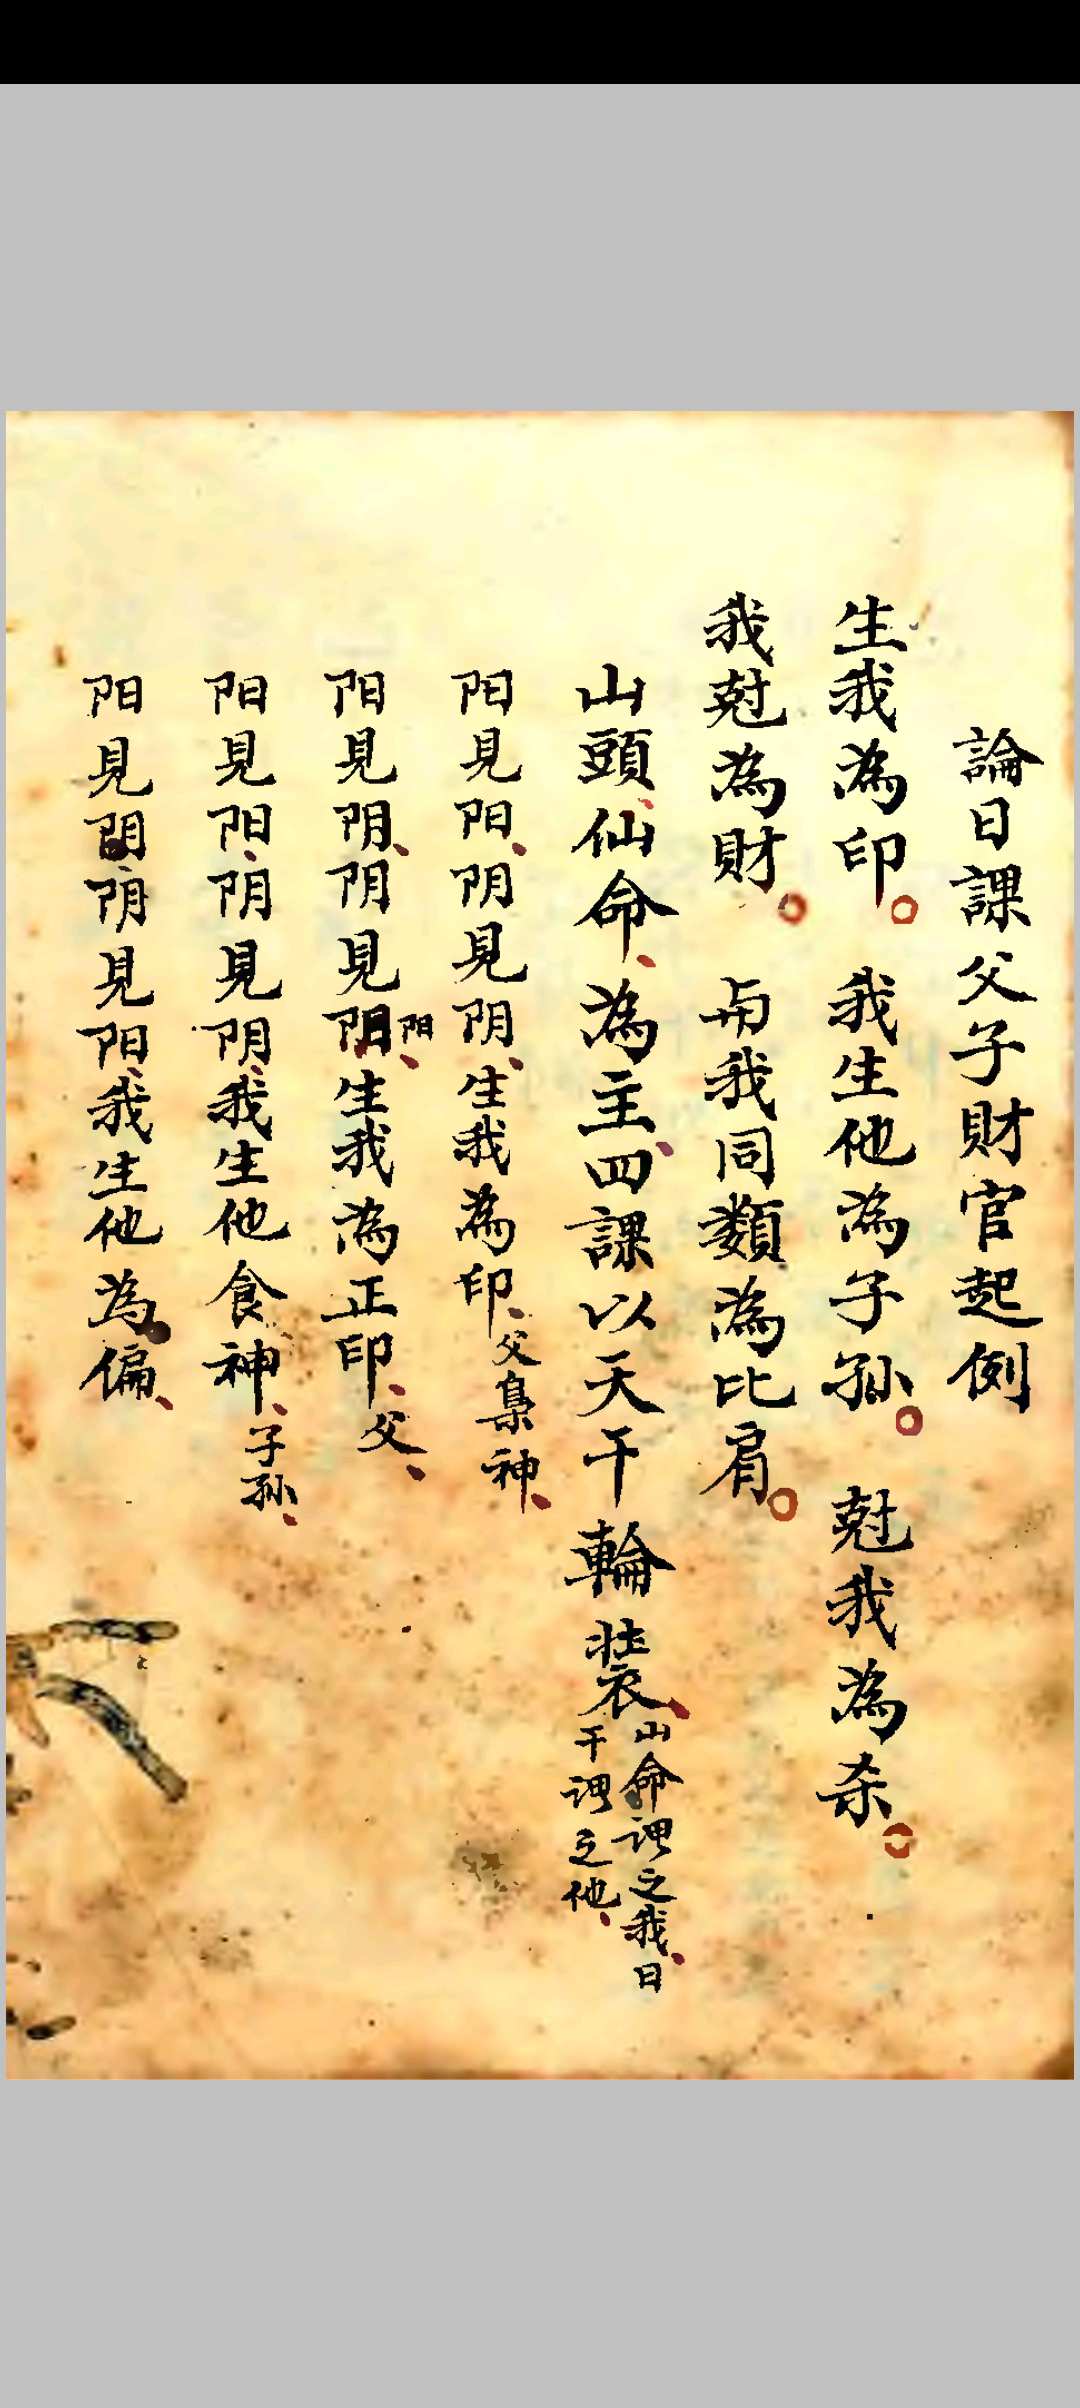 論日課父子財官起例
生我為印。 我生他為子孙。 尅我為杀。
我尅為財。 与我同類為比肩。
山頭、仙命、為主、四課以天干輪装、山命谓之我、日
干谓之他、
阳見阳、阴見阴、生我為印、父梟神、
阳見阴、阴見阳、生我為正印、父、
阳見阳、阴見阴、我生他食神、子孙、
阳見阴、阴見阳、我生他為偏、